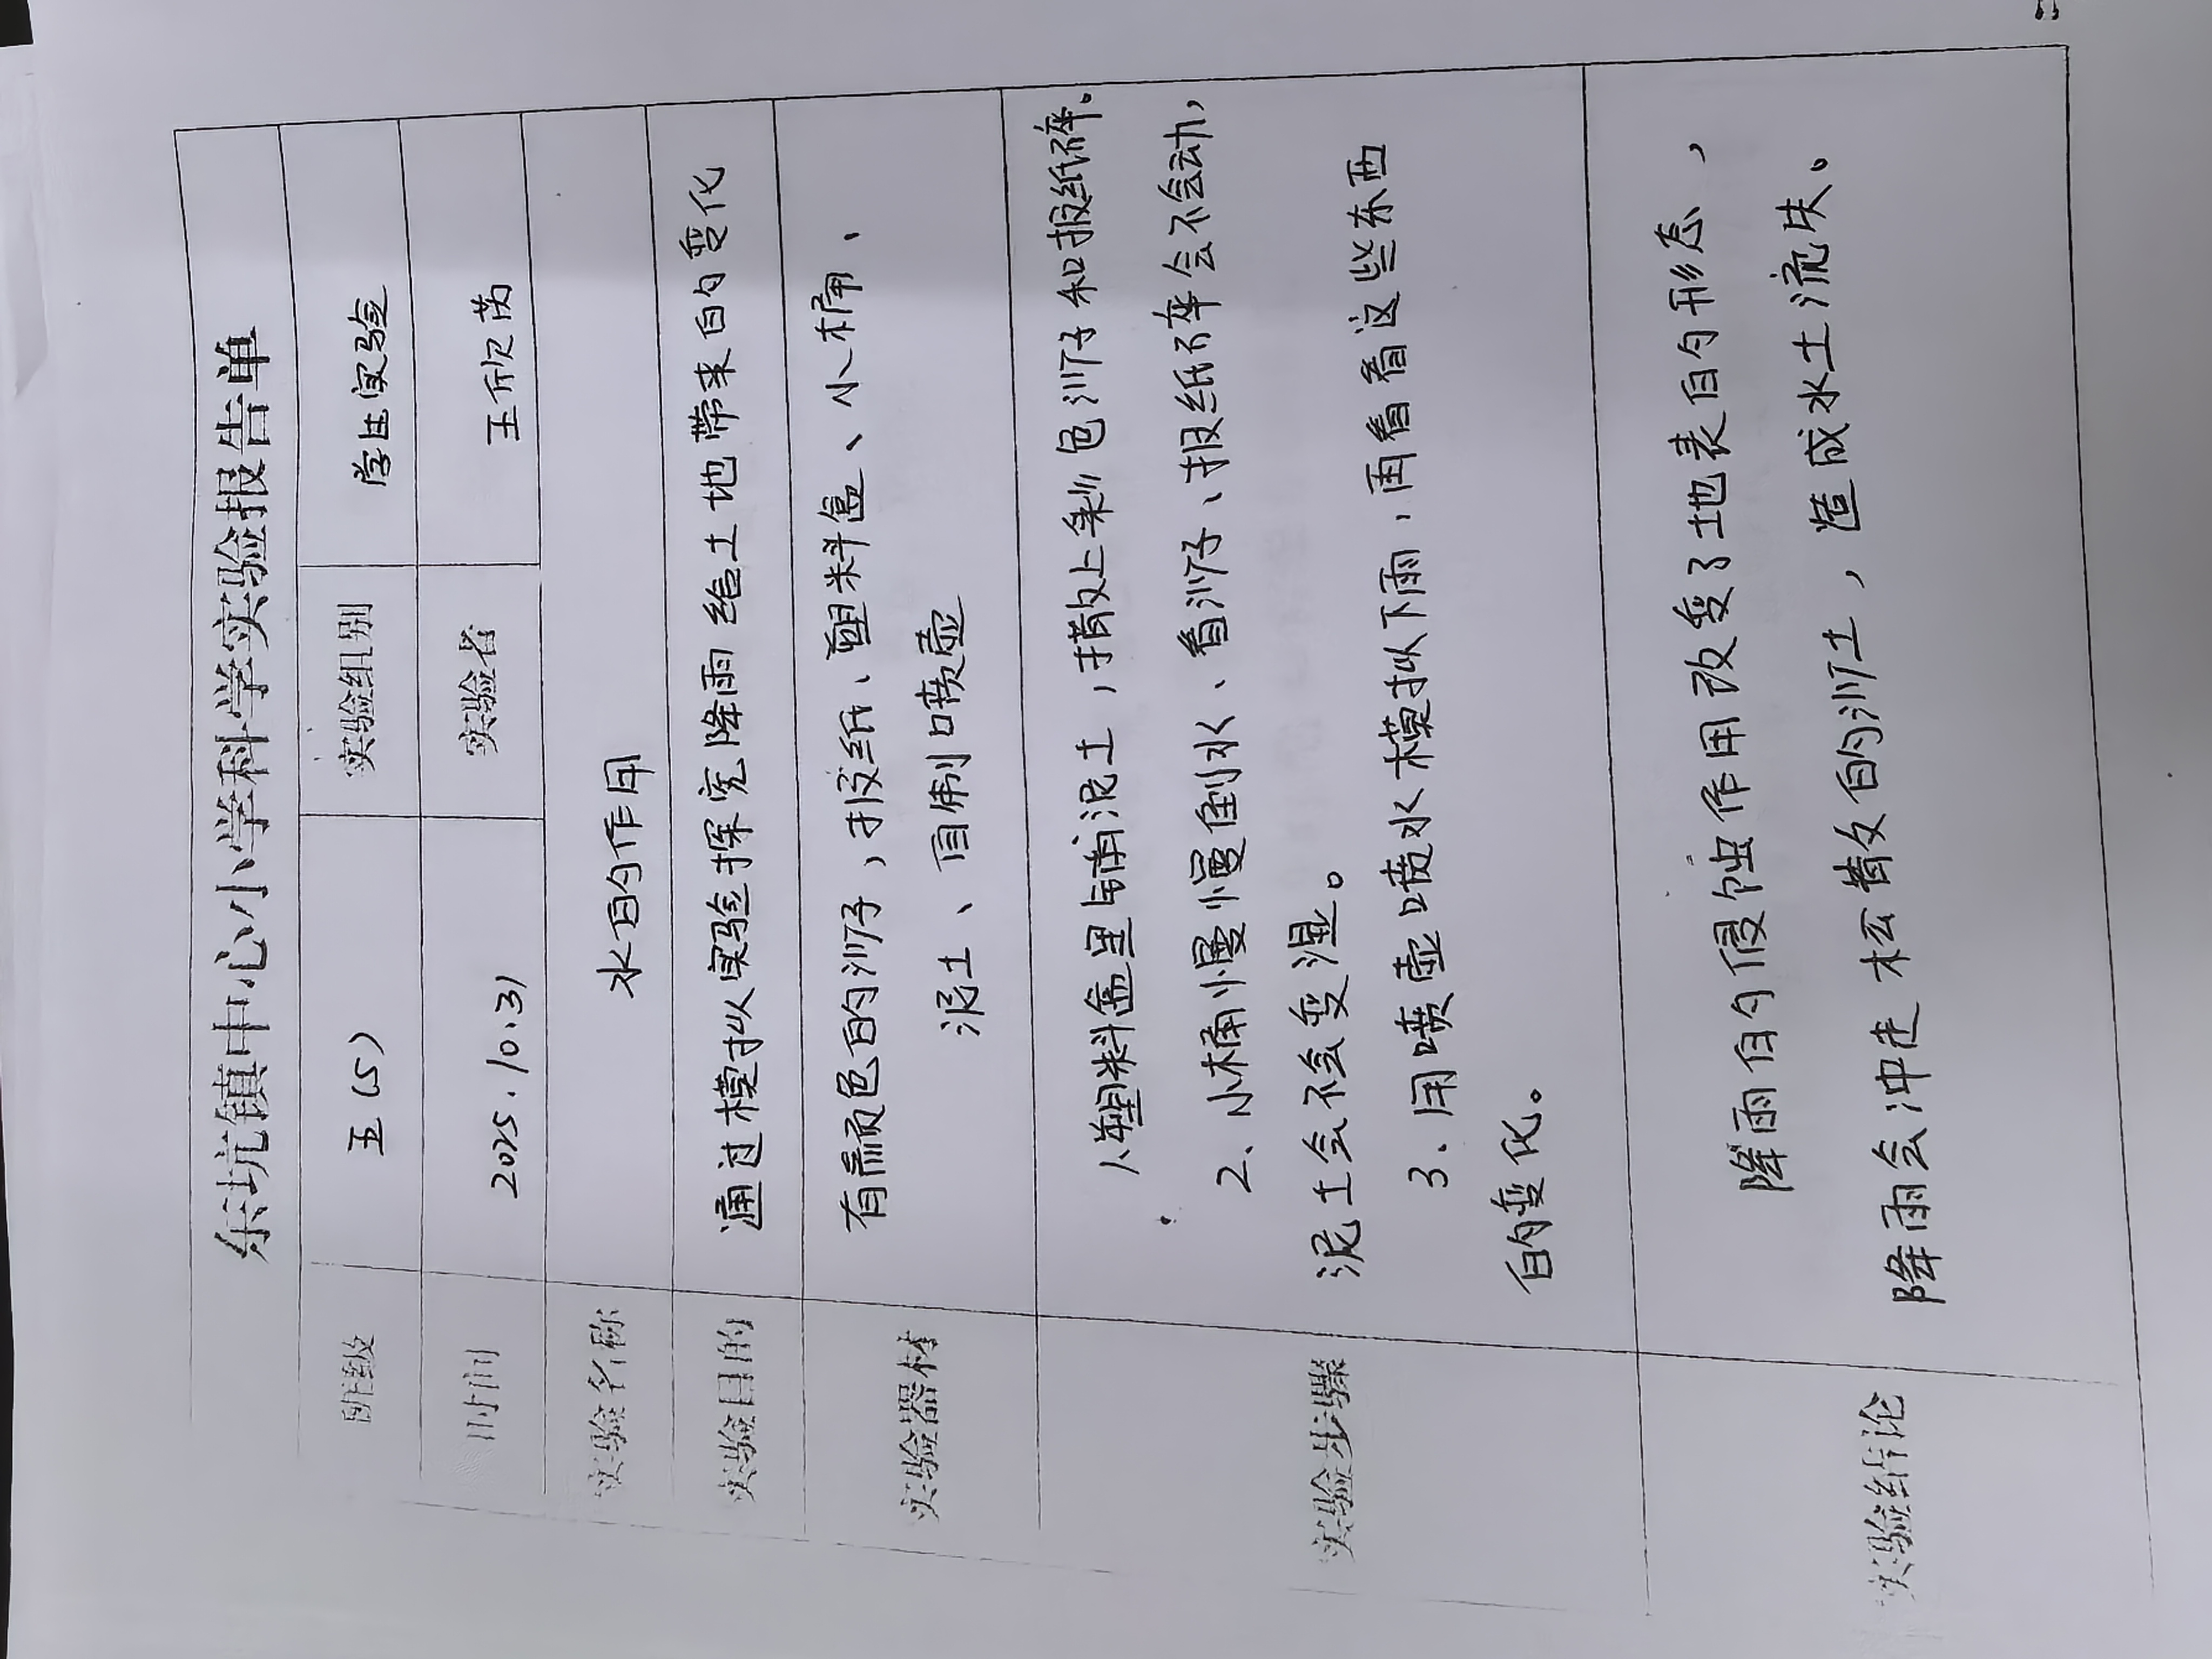 东坑镇中心小学科学实验报告单
班级 五(5) 实验组别 学生实验
时间 2025.10.31 实验者 王欣芮
实验名称 水的作用
实验目的 通过模拟实验探究降雨给土地带来的变化
实验器材 有颜色的沙子，报纸、塑料盒、小桶、
泥土、自制喷壶
实验步骤
1、塑料盒里铺泥土，撒上彩色沙子和报纸碎。
2、小桶慢慢倒水、看沙子、报纸碎会不会动，
泥土会不会变湿。
3、用喷壶喷水模拟下雨，再看看这些东西
的变化。
实验结论
降雨的侵蚀作用改变了地表的形态，
降雨会冲走松散的沙土，造成水土流失。